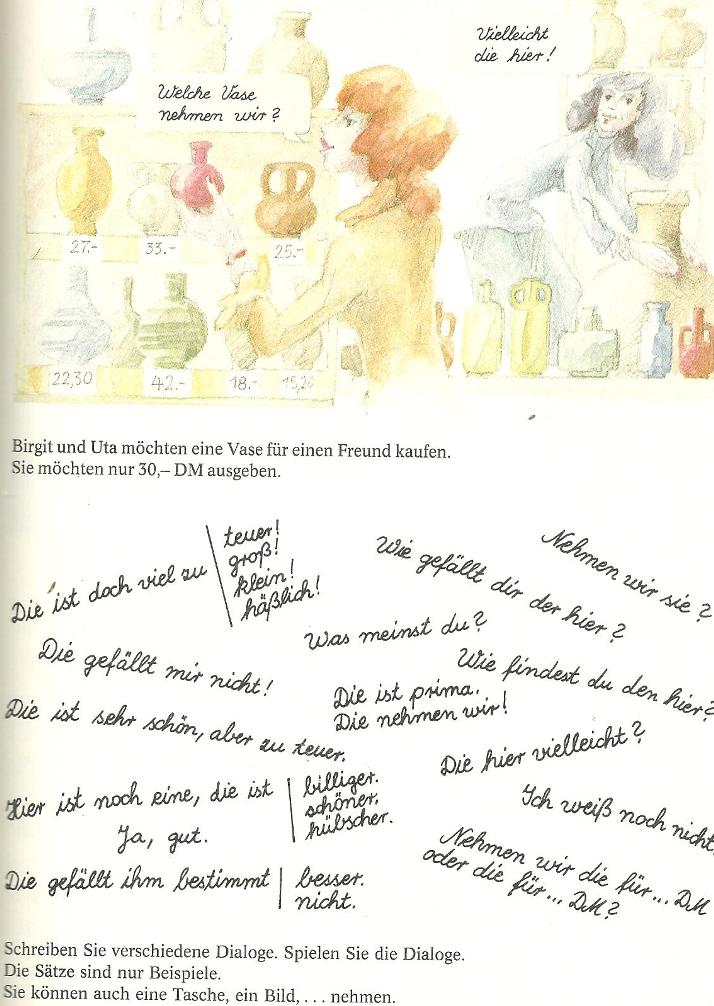 Vielleicht
die hier!
Welche Vase
nehmen wir?
27.-
33.-
25.-
22,30
42.-
18.-
15,20
Birgit und Uta möchten eine Vase für einen Freund kaufen.
Sie möchten nur 30,– DM ausgeben.
Die ist doch viel zu
teuer!
groß!
klein!
häßlich!
Wie gefällt dir der hier?
Nehmen wir sie?
Was meinst du?
Die gefällt mir nicht!
Wie findest du den hier?
Die ist prima.
Die nehmen wir!
Die ist sehr schön, aber zu teuer.
Die hier vielleicht?
Hier ist noch eine, die ist
billiger.
schöner.
hübscher.
Ich weiß noch nicht.
Ja, gut.
Nehmen wir die für... DM
oder die für... DM?
Die gefällt ihm bestimmt
besser.
nicht.
Schreiben Sie verschiedene Dialoge. Spielen Sie die Dialoge.
Die Sätze sind nur Beispiele.
Sie können auch eine Tasche, ein Bild, ... nehmen.